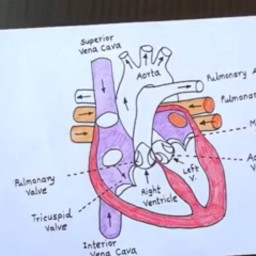 Superior
Vena Cava
Aorta
Pulmonary A
Pulmonar
M
Pulmonary
Valve
Left
V.
A
V
Right
Ventricle
Tricuspid
Valve
Interior
Vena Cava